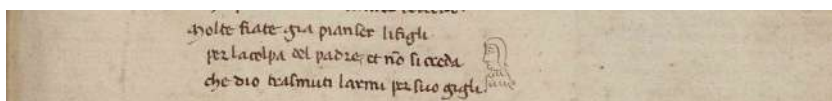 Molte fiate gia pianser li figli
per la colpa del padre, et nō si creda
che dio trasmuti larmi per suo gigli